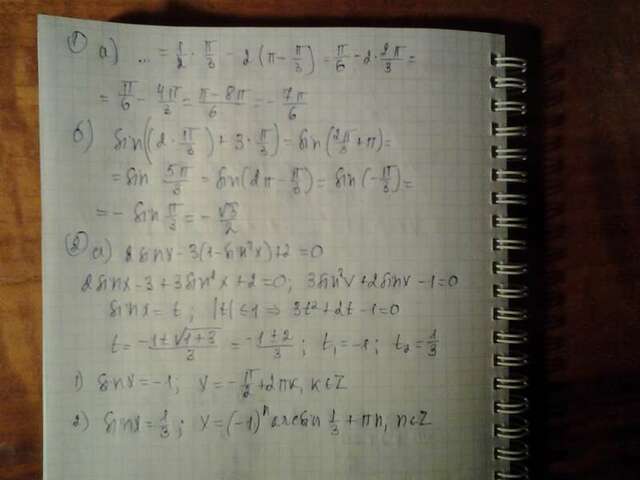 ① а) ... = 1/2 · π/3 - 2(π - π/3) = π/6 - 2 · 2π/3 =
= π/6 - 4π/3 = (π - 8π)/6 = - 7π/6
б) sin((2 · π/3) + 3 · π/3) = sin(2π/3 + π) =
= sin 5π/3 = sin(2π - π/3) = sin(-π/3) =
= - sin π/3 = - √3/2
② а) 2sinx - 3(1 - sin²x) + 2 = 0
2sinx - 3 + 3sin²x + 2 = 0; 3sin²x + 2sinx - 1 = 0
sinx = t; |t| ≤ 1 ⇒ 3t² + 2t - 1 = 0
t = (-1 ± √(1+3))/3 = (-1 ± 2)/3; t₁ = -1; t₂ = 1/3
1) sinx = -1; x = - π/2 + 2πk, k∈Z
2) sinx = 1/3; x = (-1)ⁿ arcsin 1/3 + πn, n∈Z